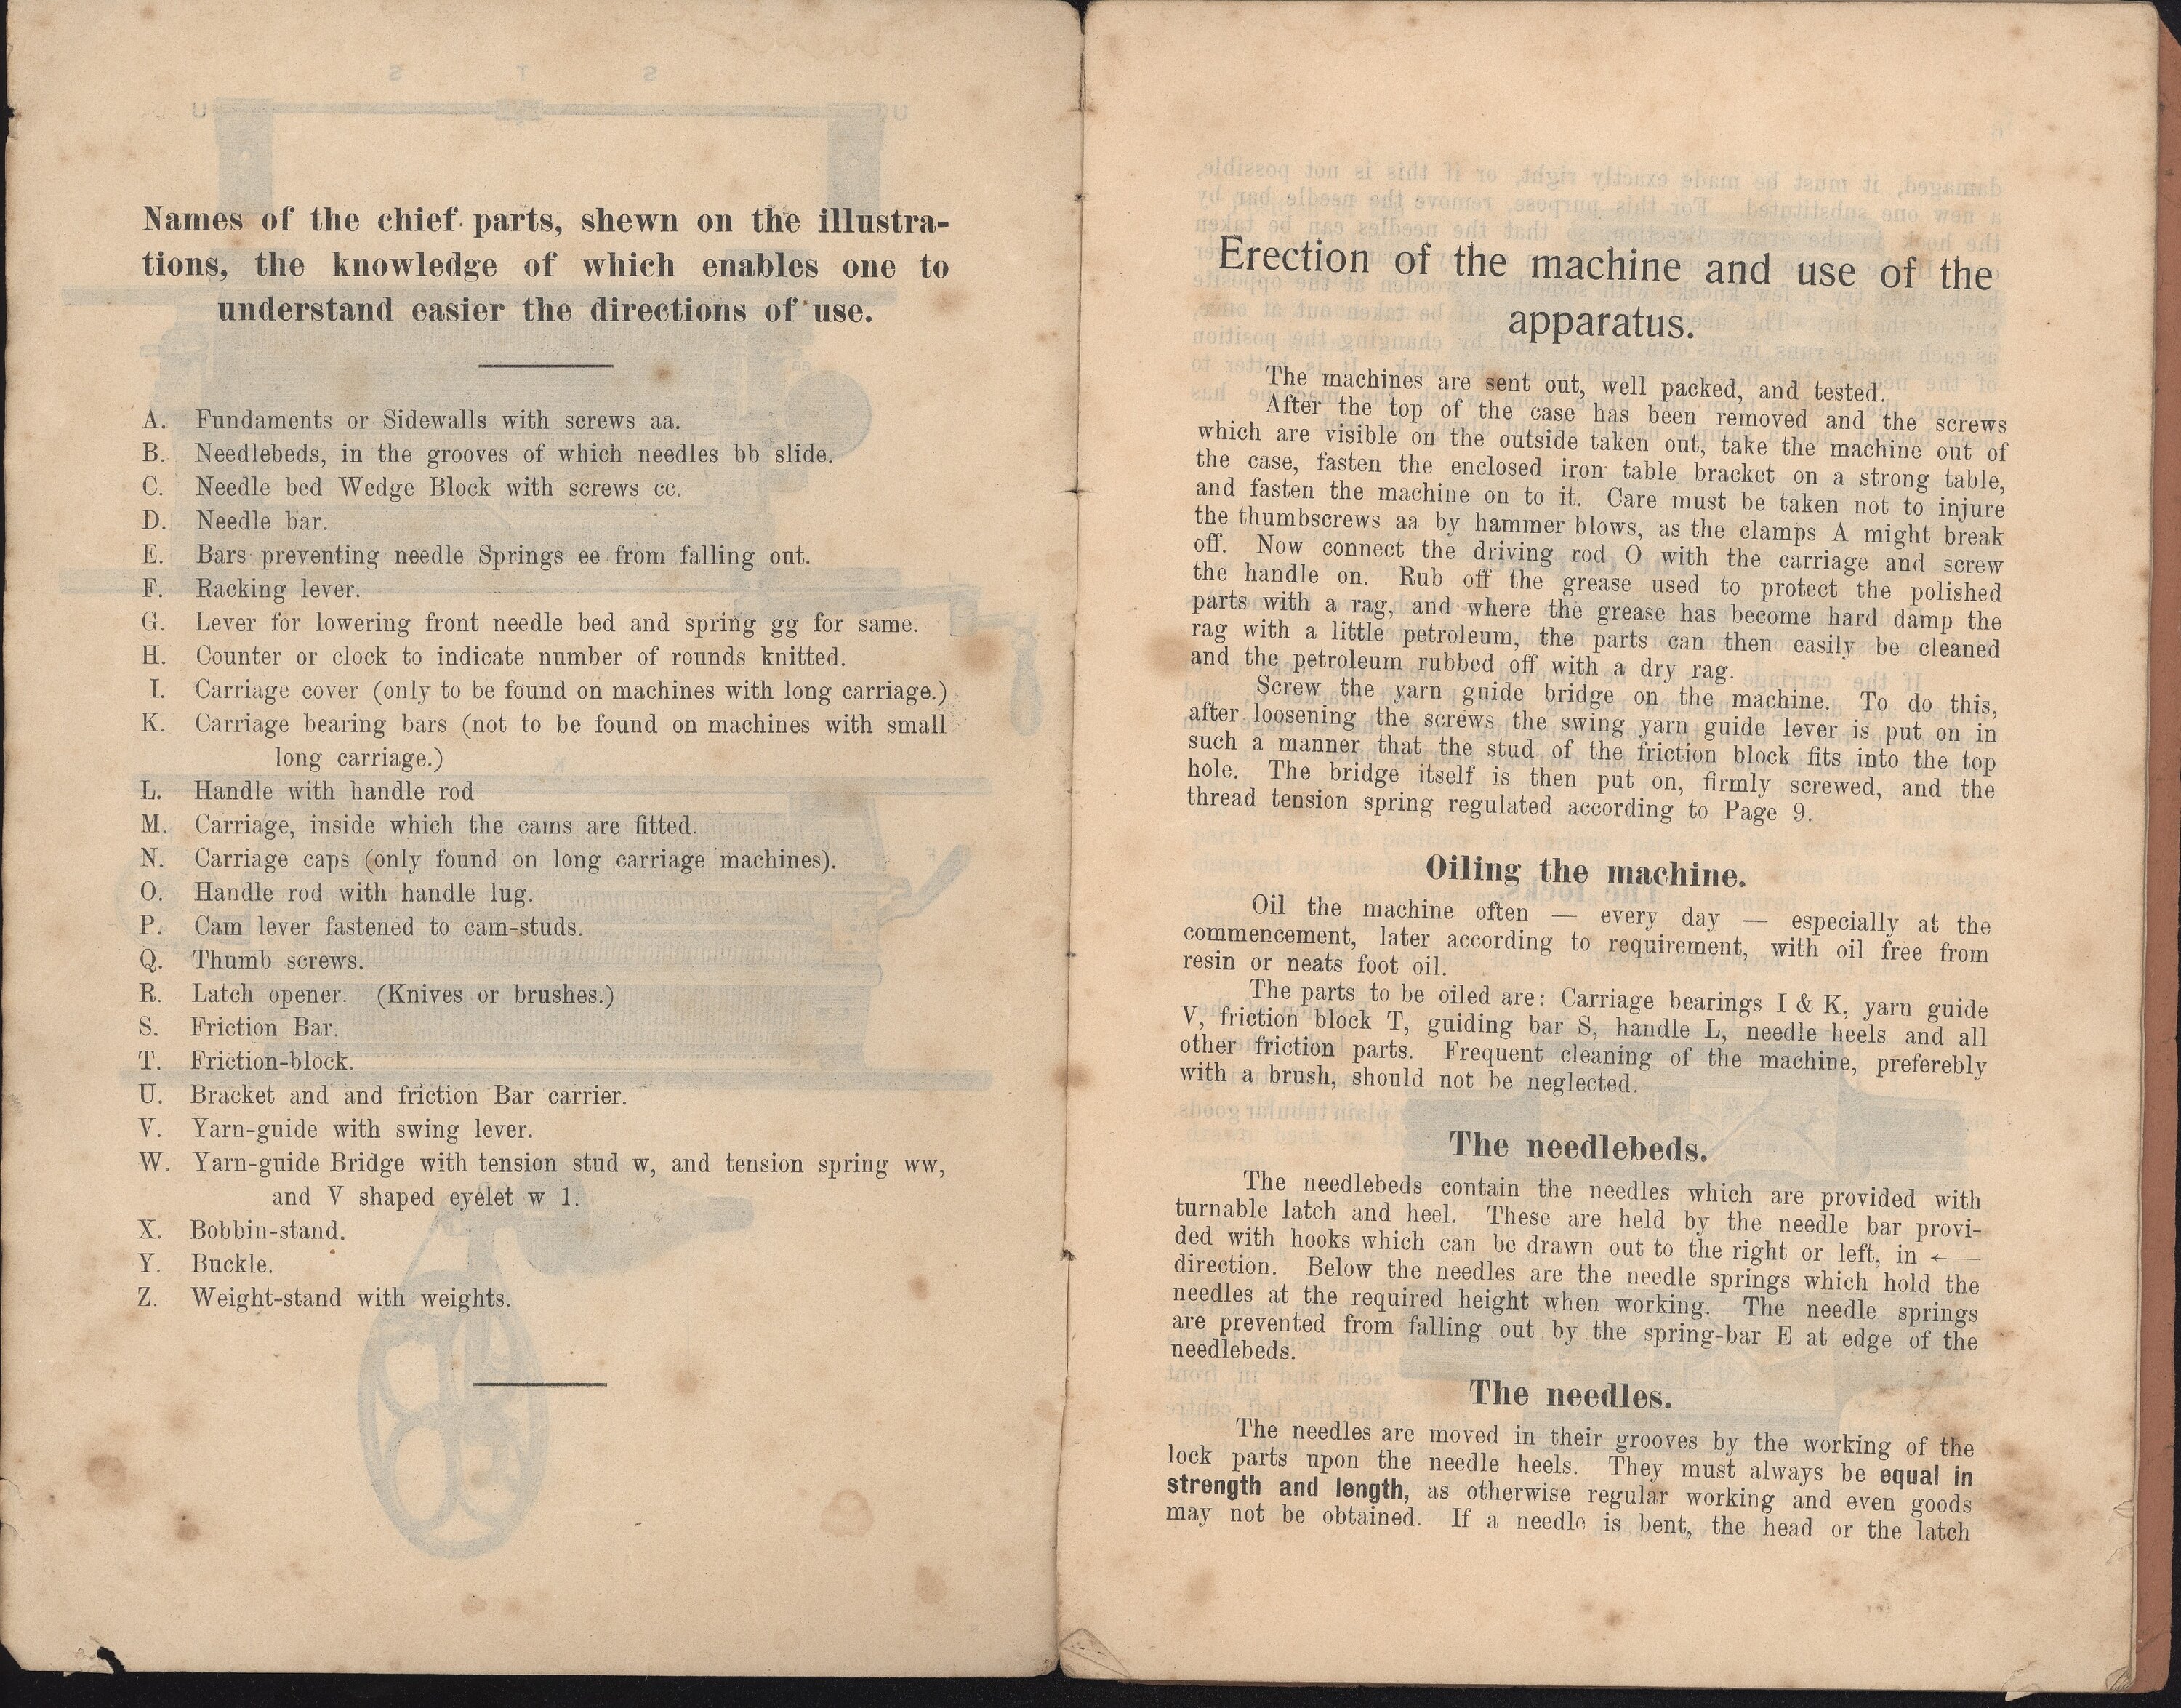 Names of the chief parts, shewn on the illustra-
tions, the knowledge of which enables one to
understand easier the directions of use.
A. Fundaments or Sidewalls with screws aa.
B. Needlebeds, in the grooves of which needles bb slide.
C. Needle bed Wedge Block with screws cc.
D. Needle bar.
E. Bars preventing needle Springs ee from falling out.
F. Racking lever.
G. Lever for lowering front needle bed and spring gg for same.
H. Counter or clock to indicate number of rounds knitted.
I. Carriage cover (only to be found on machines with long carriage.)
K. Carriage bearing bars (not to be found on machines with small
long carriage.)
L. Handle with handle rod
M. Carriage, inside which the cams are fitted.
N. Carriage caps (only found on long carriage machines).
O. Handle rod with handle lug.
P. Cam lever fastened to cam-studs.
Q. Thumb screws.
R. Latch opener. (Knives or brushes.)
S. Friction Bar.
T. Friction-block.
U. Bracket and and friction Bar carrier.
V. Yarn-guide with swing lever.
W. Yarn-guide Bridge with tension stud w, and tension spring ww,
and V shaped eyelet w 1.
X. Bobbin-stand.
Y. Buckle.
Z. Weight-stand with weights.
Erection of the machine and use of the
apparatus.
The machines are sent out, well packed, and tested.
After the top of the case has been removed and the screws
which are visible on the outside taken out, take the machine out of
the case, fasten the enclosed iron table bracket on a strong table,
and fasten the machine on to it. Care must be taken not to injure
the thumbscrews aa by hammer blows, as the clamps A might break
off. Now connect the driving rod O with the carriage and screw
the handle on. Rub off the grease used to protect the polished
parts with a rag, and where the grease has become hard damp the
rag with a little petroleum, the parts can then easily be cleaned
and the petroleum rubbed off with a dry rag.
Screw the yarn guide bridge on the machine. To do this,
after loosening the screws the swing yarn guide lever is put on in
such a manner that the stud of the friction block fits into the top
hole. The bridge itself is then put on, firmly screwed, and the
thread tension spring regulated according to Page 9.
Oiling the machine.
Oil the machine often — every day — especially at the
commencement, later according to requirement, with oil free from
resin or neats foot oil.
The parts to be oiled are: Carriage bearings I & K, yarn guide
V, friction block T, guiding bar S, handle L, needle heels and all
other friction parts. Frequent cleaning of the machine, preferebly
with a brush, should not be neglected.
The needlebeds.
The needlebeds contain the needles which are provided with
turnable latch and heel. These are held by the needle bar provi-
ded with hooks which can be drawn out to the right or left, in ←
direction. Below the needles are the needle springs which hold the
needles at the required height when working. The needle springs
are prevented from falling out by the spring-bar E at edge of the
needlebeds.
The needles.
The needles are moved in their grooves by the working of the
lock parts upon the needle heels. They must always be equal in
strength and length, as otherwise regular working and even goods
may not be obtained. If a needle is bent, the head or the latch